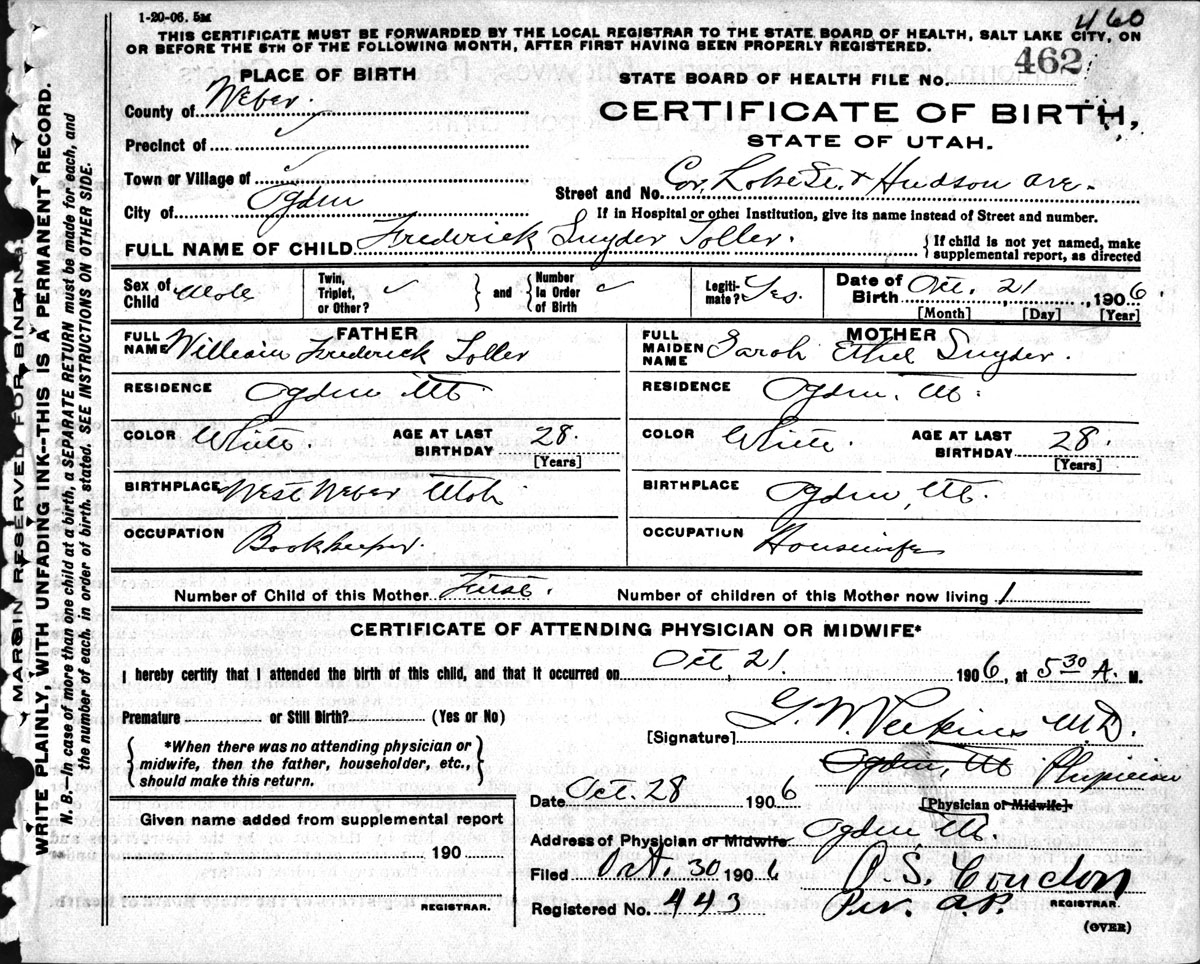 1-20-06. 5M
460
THIS CERTIFICATE MUST BE FORWARDED BY THE LOCAL REGISTRAR TO THE STATE BOARD OF HEALTH, SALT LAKE CITY, ON
OR BEFORE THE 5TH OF THE FOLLOWING MONTH, AFTER FIRST HAVING BEEN PROPERLY REGISTERED.
PLACE OF BIRTH
STATE BOARD OF HEALTH FILE No. 462
County of Weber.
CERTIFICATE OF BIRTH,
Precinct of ✓
STATE OF UTAH.
Town or Village of ✓
Street and No. Cor. & Hudson ave.
City of Ogden
If in Hospital or other Institution, give its name instead of Street and number.
FULL NAME OF CHILD Frederick Snyder Toller.
{ If child is not yet named, make
supplemental report, as directed
Sex of Child Male
Twin, Triplet, or Other? ✓ } and { Number In Order of Birth ✓
Legiti-mate? Yes.
Date of Birth Oct. 21, 1906.
[Month] [Day] [Year]
FATHER
FULL NAME William Frederick Toller
MOTHER
FULL MAIDEN NAME Sarah Ethel Snyder.
RESIDENCE Ogden Ut.
RESIDENCE Ogden, Ut.
COLOR White. AGE AT LAST BIRTHDAY 28. [Years]
COLOR White. AGE AT LAST BIRTHDAY 28. [Years]
BIRTHPLACE West Weber Utah
BIRTHPLACE Ogden, Ut.
OCCUPATION Bookkeeper.
OCCUPATION Housewife
Number of Child of this Mother First. Number of children of this Mother now living 1
CERTIFICATE OF ATTENDING PHYSICIAN OR MIDWIFE*
I hereby certify that I attended the birth of this child, and that it occurred on Oct, 21. 1906, at 5 30 A. M.
Premature or Still Birth? (Yes or No)
[Signature] G. W. Perkins M.D.
{ *When there was no attending physician or
midwife, then the father, householder, etc.,
should make this return. }
Ogden, Ut Physician
[Physician or Midwife]
Date Oct. 28 1906
Given name added from supplemental report
190
REGISTRAR.
Address of Physician or Midwife Ogden Ut.
Filed Oct. 30 1906
P. S. Condon
Registered No. 443
Per. A.P. REGISTRAR.
(OVER)
MARGIN RESERVED FOR BINDING
WRITE PLAINLY, WITH UNFADING INK--THIS IS A PERMANENT RECORD.
N. B.—In case of more than one child at a birth, a SEPARATE RETURN must be made for each, and
the number of each, in order of birth, stated. SEE INSTRUCTIONS ON OTHER SIDE.